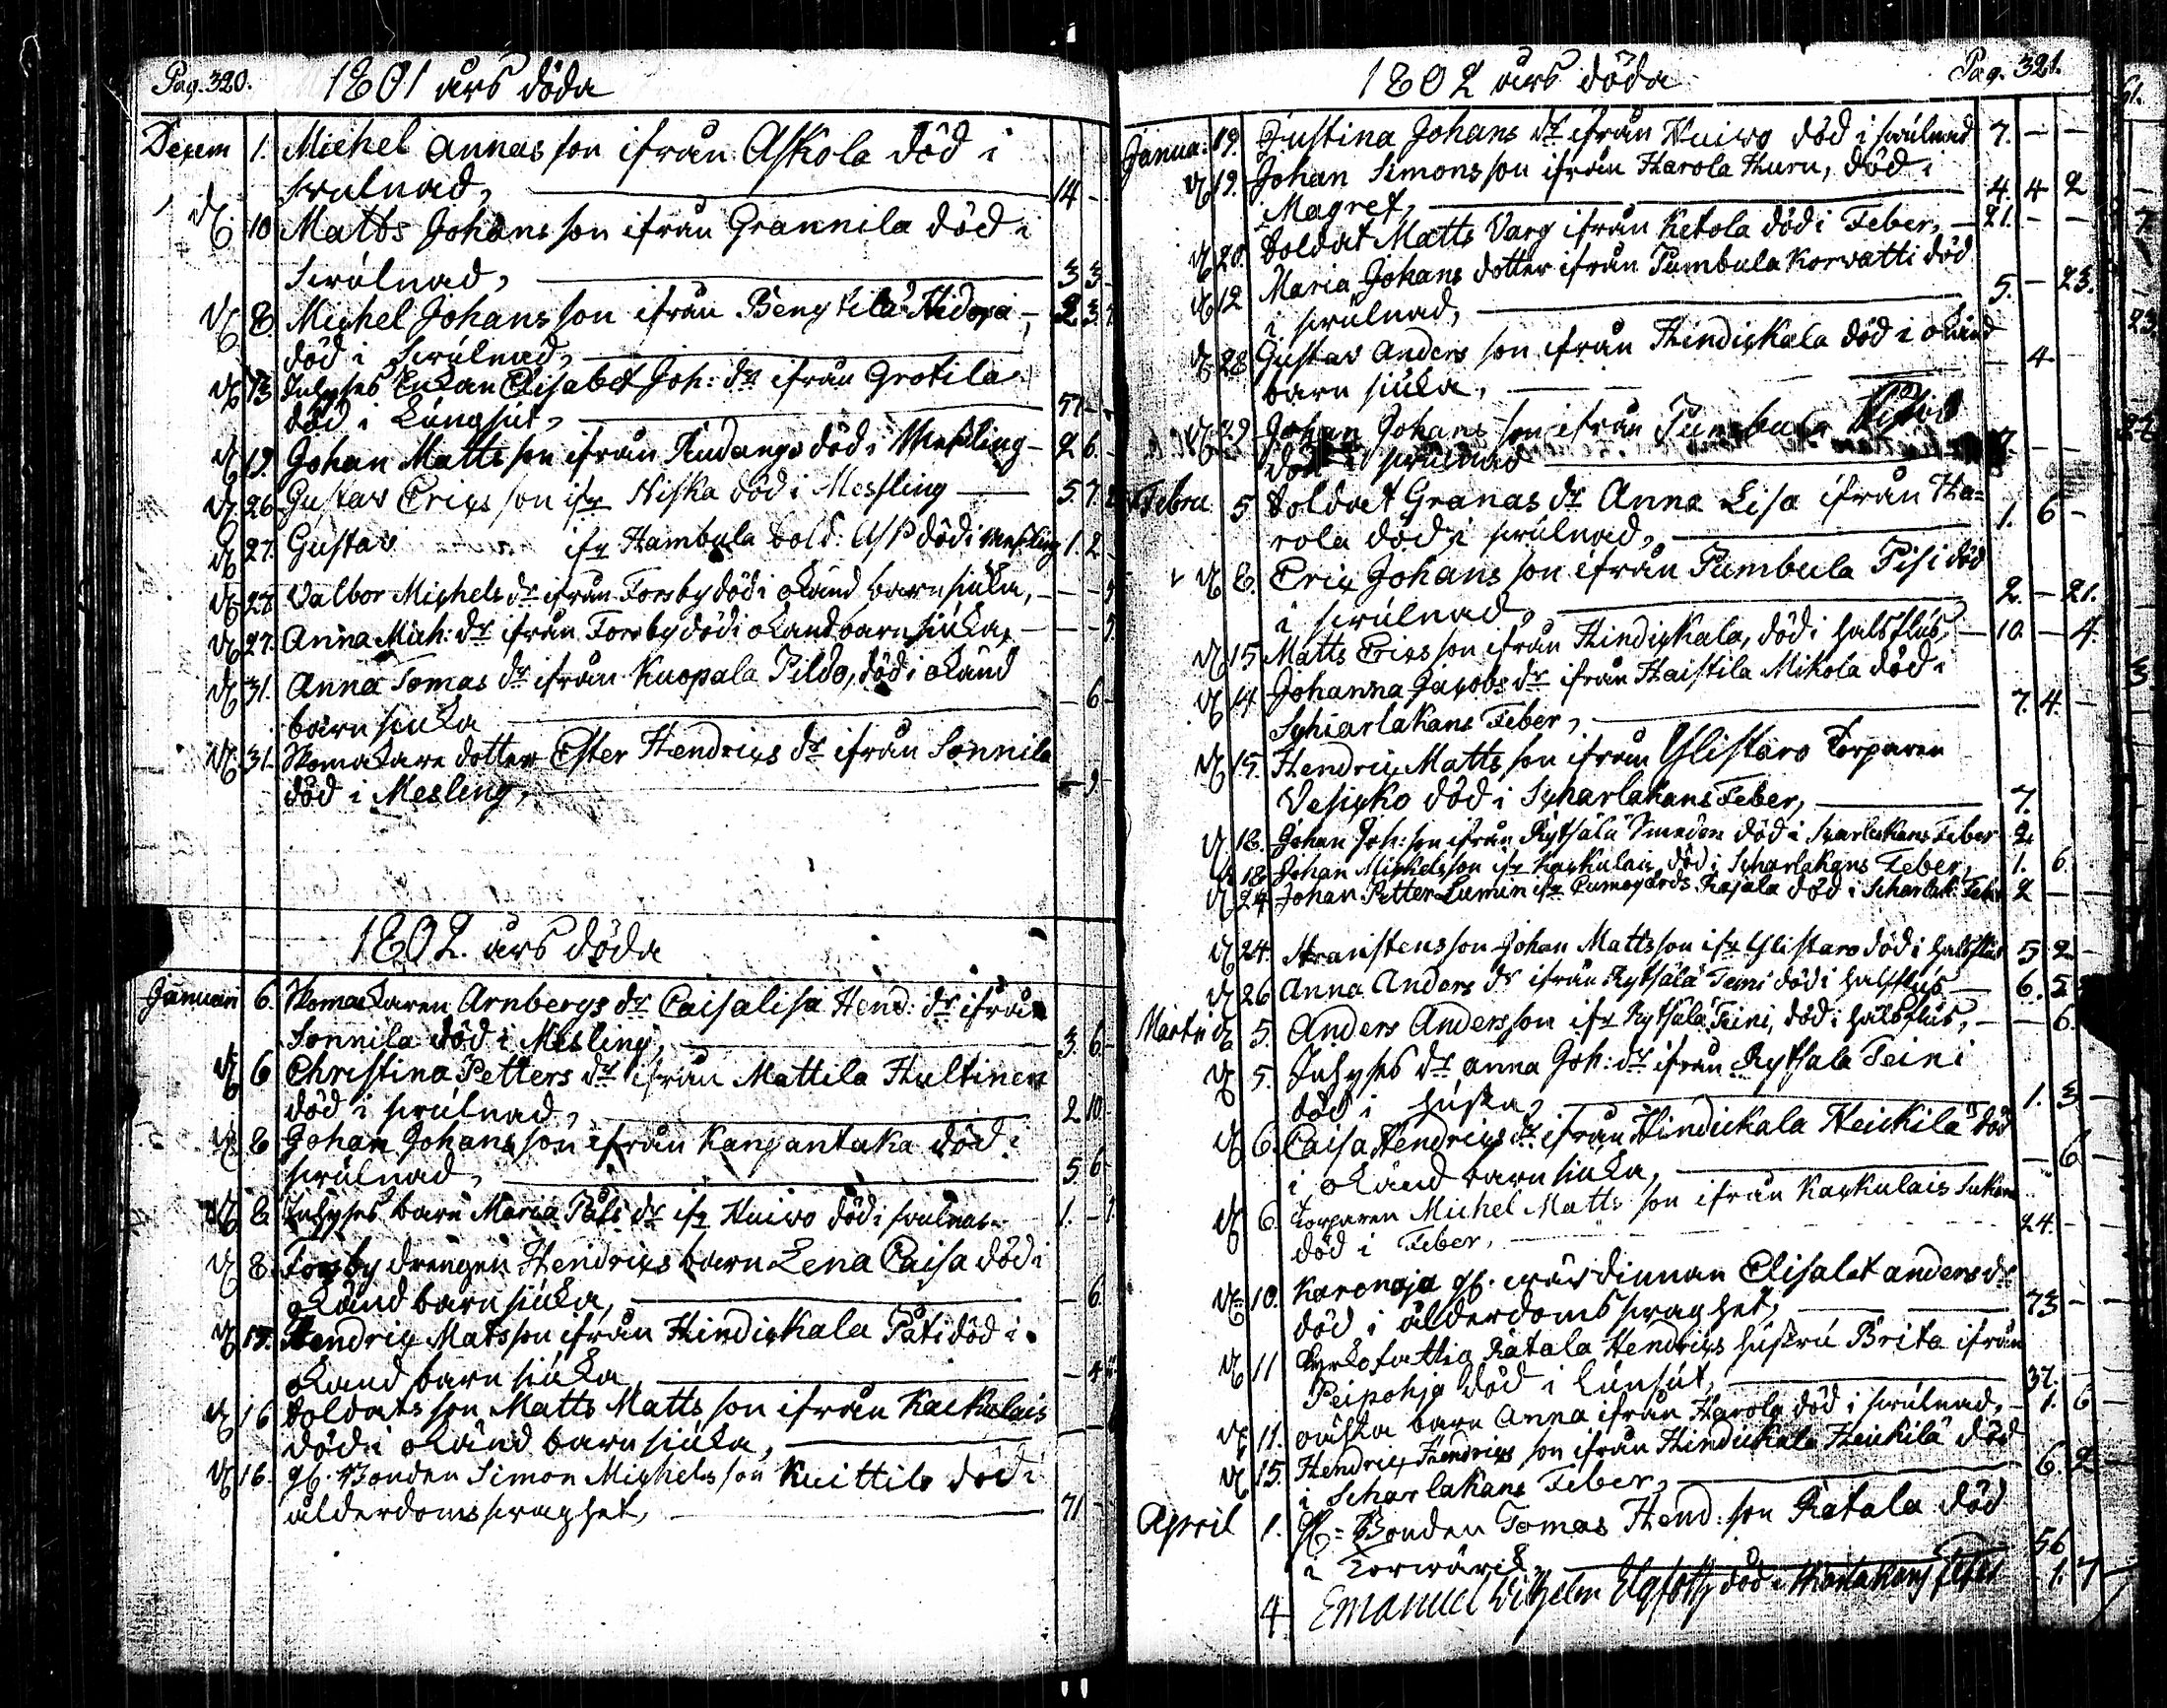 Pag. 320. 1801 års döda
Decem 1. Michel Annasson ifrån Askola död i
svulnad, 14 -
10 Matts Johansson ifrån Grannila död i
svulnad, 3 3 -
8. Michel Johansson ifrån Bengtilä Hidoja 2 3
död i svulnad,
13 Inhyses Enkan Elisabet Joh: dr ifrån Grotila
död i Lungsút, 57 -
19. Johan Mattsson ifrån död i Messling - 2 6 -
26 Gustav Ericsson ifr Niska död i Messling 5. 7.
27. Gustav ifr Hambula Sold: Asp död i Messling 1. 2
27 Valbor Michels dr ifrån Forsby död i okänd barnsiúka,
27. Anna Mich: dr ifrån Forsby död i okänd barnsiúka,
31. Anna Tomas dr ifrån Kuopala Pildo, död i okänd
barnsiuka - 6 -
31. Skomakare dotter Ester Hendrics dr ifrån Sonnila
död i Mesling, - 9.
1802. års döda
Januari 6. Skomakaren Arnbergs dr Caisalisa Hend: dr ifrån
Sonnila död i Mesling, 3. 6 -
6 Christina Petters dr ifrån Mattila Hultinen
död i svulnad, 2 10 -
8 Johan Johansson ifrån Kangantaka död i
svulnad, 5. 6 -
8 Inhyses barn Maria Påls dr ifr Huivo död i svulnad 1. -
8. Forsby drengen Hendrics barn Lena Caisa död i
okänd barnsiúka, - 6
15. Hendric Matsson ifrån Hindickala Pati död i
okand barnsiúka, - 4
16 Soldats son Matts Matts son ifrån Kackulais
död i okänd barnsiúka,
16. gl. Bonden Simon Michels son Kuittilo död i
ålderdoms svaghet, 71 -
1802 års döda Pag. 321.
Janua: 19. Justina Johans dr ifrån Huivo död i svúlnad 7. - -
19. Johan Simons son ifrån Harola Huru, död i
Magref, 4. 4 2
20. Soldat Matts Varg ifrån Ketola död i Feber, - 21. - -
12 Maria Johans dotter ifrån Pumbula Korvatti död
i svúlnad, 5. - 23.
28 Gustav Anders son ifrån Hindickala död i okänd
barnsiúka, - 4 -
29 Johan Johans son ifrån Pumbula
död i svúlnad 7. - -
Febru 5 Soldat Granas dr Anna Lisa ifrån Ha=
rola död i svúlnad, 1. 6 -
8. Eric Johans son ifrån Pumbula Pisi död
i svúlnad, 2. - 21.
15 Matts Ericsson ifrån Hindickala, död i halsflús, - 10. - 4.
14 Johanna Jacobs dr ifrån Haistila Mikola död i
Schiarlakans Feber, 7. 4. -
15. Hendric Matts son ifrån Ylistaro Torparen
Vesicko död i Scharlakans Feber, 7.
18. Johan Joh: son ifrån Kythälä Smeden död i Scarlakans Feber 2.
18 Johan Michelsson ifr Kackulais död i Scharlakans Feber, 1. 6.
24 Johan Petter ifr Kumogårds Rajala död i Scharlak: Feber 2 -
24. son Johan Mattsson ifr Ylistaro död i halsflús 5 2 -
26 Anna Anders dr ifrån Kythälä Teini död i halsflús 6. 5
Marti 5. Anders Andersson ifr Kythälä Teini, död i halsflús, - - 6.
5. Inhyses dr Anna Joh: dr ifrån Kythala Teini
död i húska, 1. 3 -
6. Caisa Hendrics dr ifrån Hindickala Heickilä död
i okänd barnsiuka, - 6 -
6 Torparen Michel Matts son ifrån Kackulais
död i Feber, 24. - -
10. Karonoja gl. värdinnan Elisabet Anders dr
död i ålderdoms svaghet, 73 - -
11 Kyrkofattig Ratala Hendrics hústrú Brita ifrån
Peipohja död i Lúnsút, 37. -
11. oäckta barn Anna ifrån Harola död i svúlnad, - 1. 6 -
15. Hendric Hendrics son ifrån Hindickala Heickilä död
i Scharlakans Feber, 6. 2 -
April 1. gl= Bonden Tomas Hend: son Ratala död
i Torvärck, 56
4 Emanuel Wilhelm död i Skarlakans Feber 1. 7